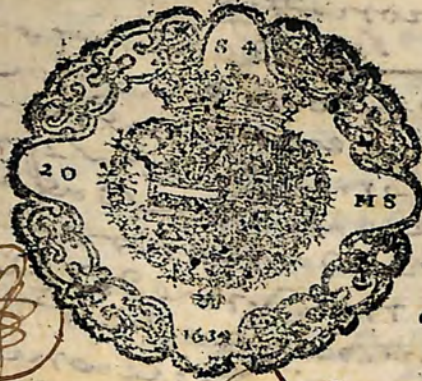 S 4
20 MS
1639